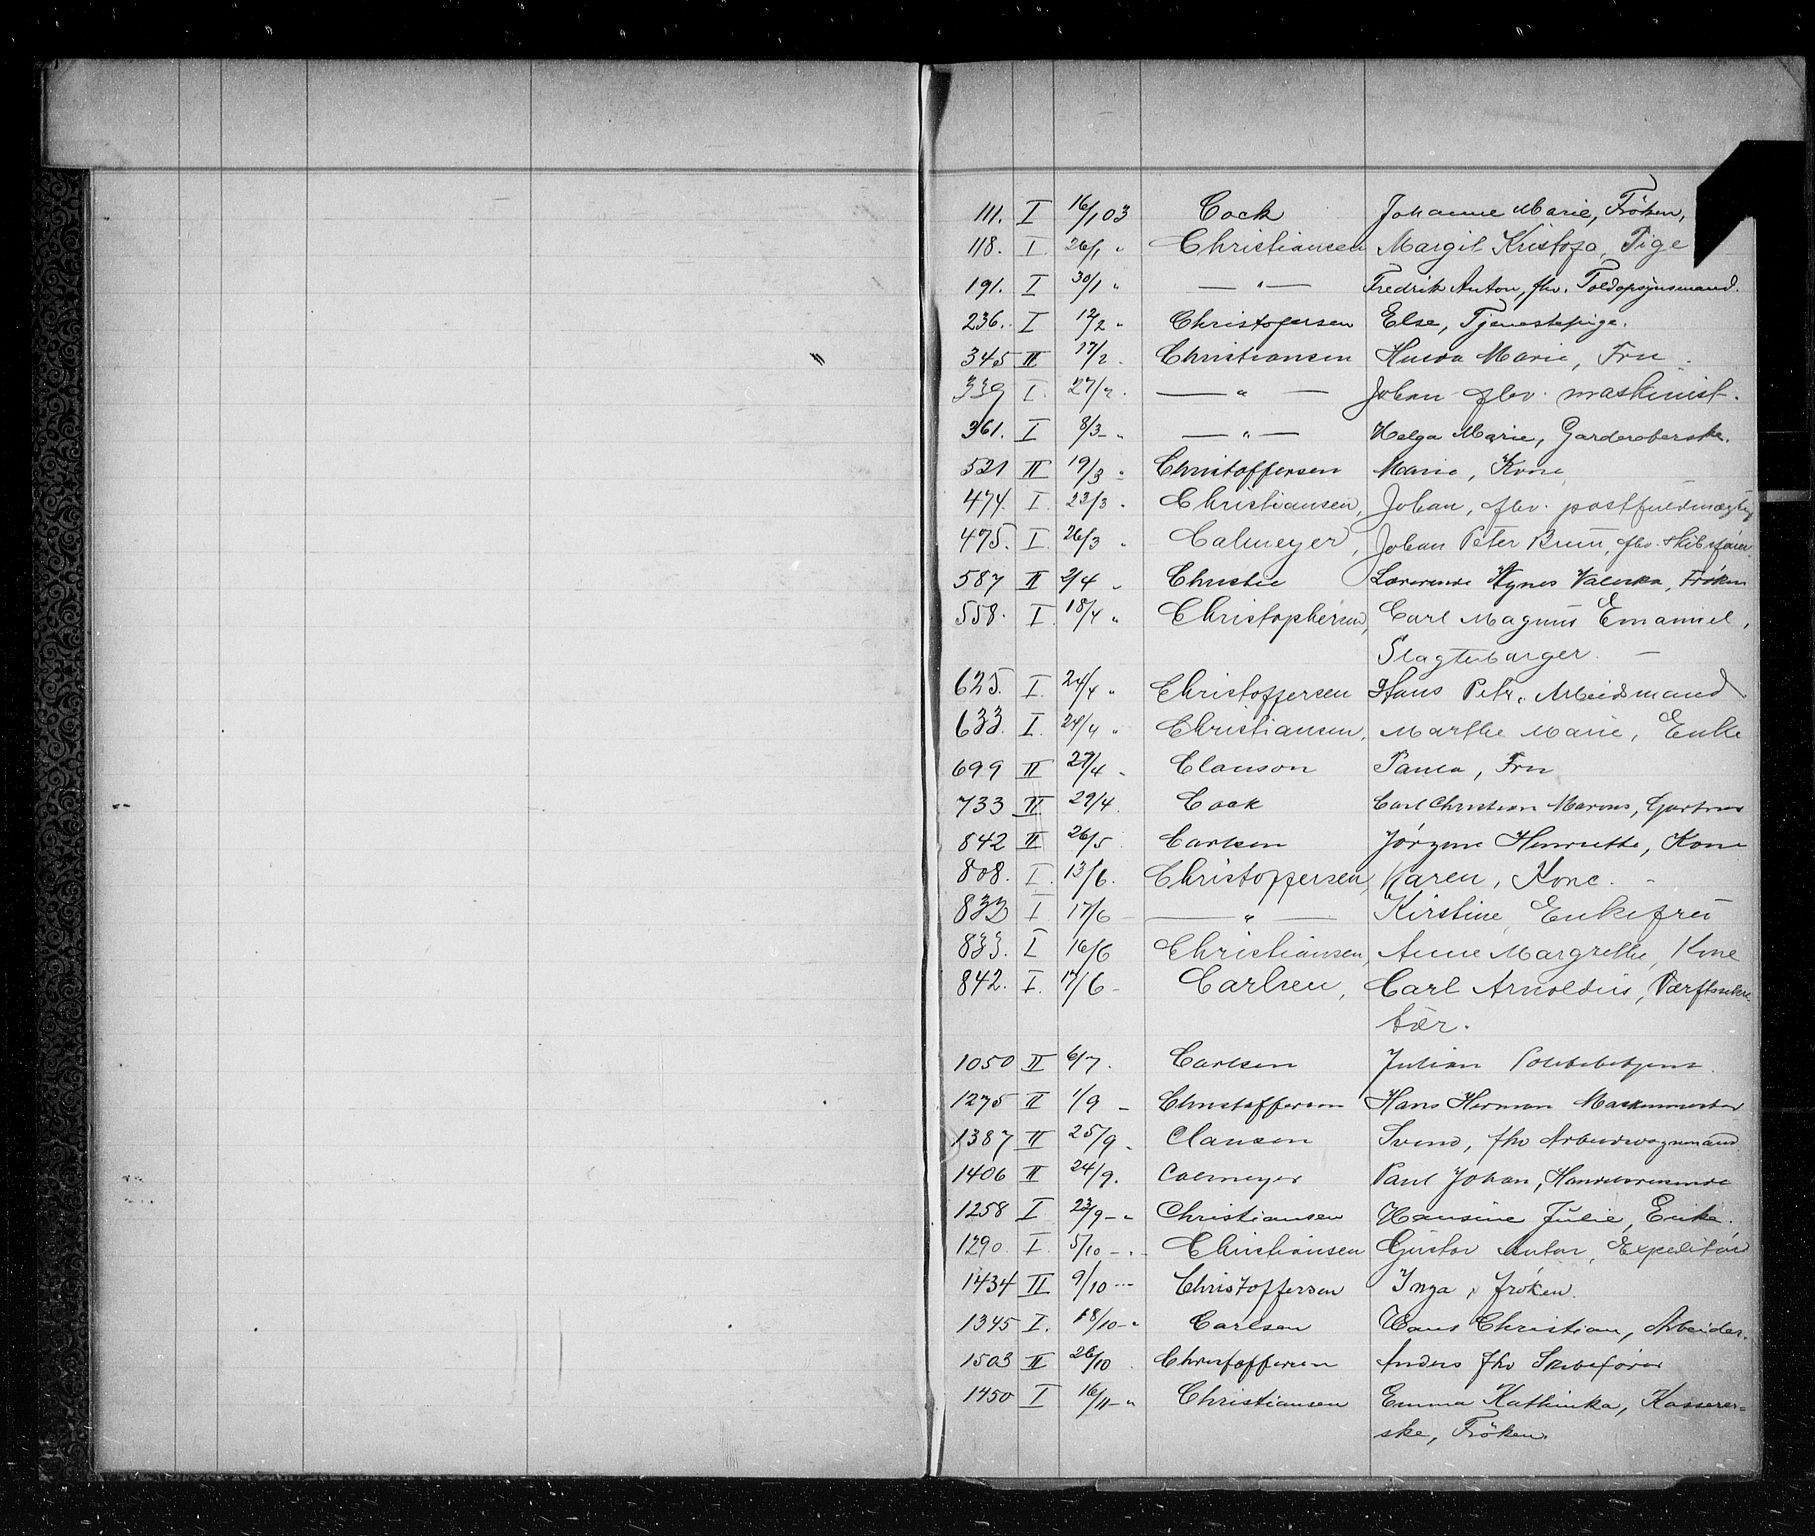 111. I 16/1 03 Cock Johanne Marie, Frøken,
118. I. 26/1 " Christiansen Margit Kristofa, Pige
191. I 30/1 " — " — Fredrik Anton, fhv. Toldopsynsmand.
236. I 12/2 " Christofersen Else, Tjenestepige.
345 II 17/2 . Christiansen Marie, Fru
339 I. 27/2 . — " — Johan fhv. maskinist.
361. I 8/3 - " — " — Helga Marie, Garderoberske.
521 II 19/3 " Christoffersen Marie, Kone
474. I. 23/3 . Christiansen, Johan, fhv. postfuldmægtig
475. I. 26/3 " Calmeyer, Johan Peter Brun, fhv. skibsfører
587 II 2/4 " Christie Lærerinde Agnes Valeska, Frøken
558. I. 18/4 " Christophersen, Carl Magnus Emanuel,
Slagterborger. —
625. I. 24/4 " Christoffersen Hans Petr. Arbeidsmand
633. I. 24/4 " Christiansen, Marthe Marie, Enke
699 II 27/4 " Clauson Paula, Fru
733 II 29/4 . Cock Carl Christian Marius, Gartner
842 II 26/5 . Carlsen Jørgine Henriette, Kone
808. I. 13/6 . Christoffersen, Karen, Kone. -
833 I 17/6 — " — Kirstine Enkefru
833. I. 16/6 Christiansen, Anne Margrethe, Kone
842. I. 17/6 - Carlsen, Carl Arnoldus, Værftssekre-
tær.
1050 II 6/7 . Carlsen Julian Politibetjent
1275 II 1/9 - Christoffersen Hans Herman Maskinmester
1387 II 25/9 . Clausen Svend, fhv Arbeidsvognmand
1406 II 24/9 . Calmeyer Paul Johan, Handelsreisende
1258 I 23/9 - " Christiansen Hansine Julie, Enke.
1290. I. 5/10 - . Christiansen Gustav Anton, Expeditør
1434 II 9/10 ... Christoffersen Inga, frøken.
1345 I. 18/10 - " Carlsen Hans Christian, Arbeider.
1503 II 26/10 . Christoffersen Anders fhv Skibsfører
1450 I 16/11 - " Christiansen Emma Kathinka, Kasserer=
ske, Frøken.